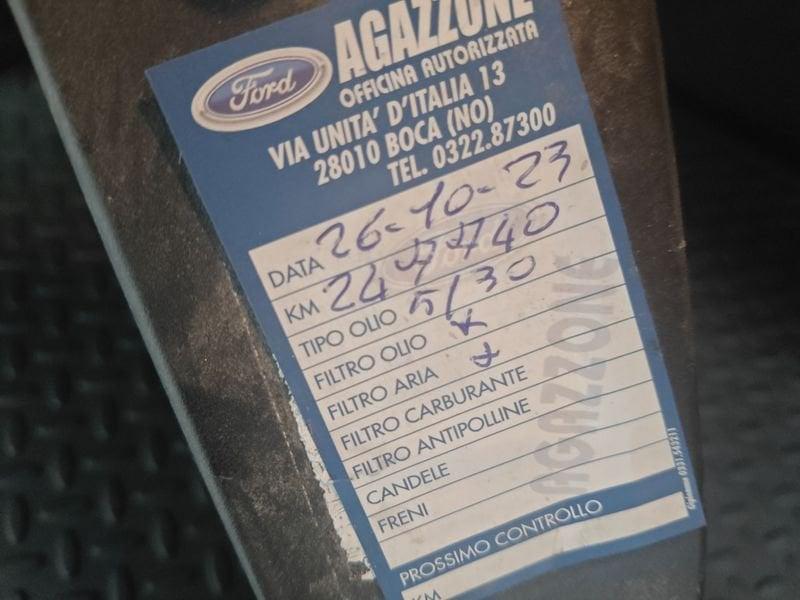 Ford
AGAZZONE
OFFICINA AUTORIZZATA
VIA UNITA' D'ITALIA 13
28010 BOCA (NO)
TEL. 0322.87300
DATA 26-10-23
KM 247740
TIPO OLIO 5/30
FILTRO OLIO x
FILTRO ARIA x
FILTRO CARBURANTE
FILTRO ANTIPOLLINE
CANDELE
FRENI
AGAZZONE
PROSSIMO CONTROLLO
KM